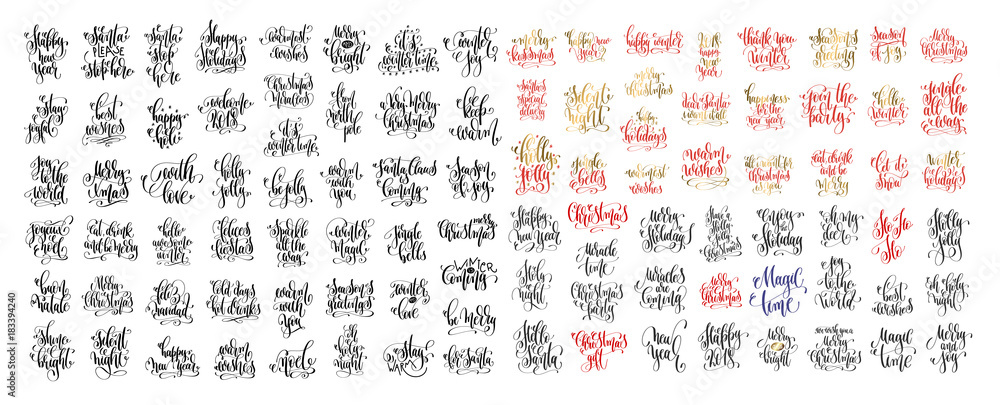 Happy
new
year
Santa
PLEASE
stop here
Santa
stop
here
Happy
Holidays
warmest
wishes
merry
bright
it's
winter time
winter
joy
stay
joyful
best
wishes
happy
noel
welcome
2018
Christmas
miracles
it's
winter time
from
north
pole
Very merry
Christmas
keep
warm
Joy
to the
world
Merry
Xmas
with
love
holly
jolly
be jolly
warm
with
you
Santa Claus
coming
Season
of joy
joyeux
noel
eat, drink
and be merry
hello
awesome
winter
felices
fiestas
Sparkle
all the
way
winter
magic
jingle
bells
merry
Christmas
buon
natale
Merry
Christmas
feliz
navidad
Cold days
hot drinks
warm
with
you
Season's
Greetings
winter
love
WINTER
coming
be merry
Shine
bright
Silent
night
happy
new year
warm
wishes
noel
stay
WARM
Santa
merry
Kissmas
happy
new
year
happy winter
2018
happy
new
year
thank you
winter
season's
greeting
Season
of joy
Merry
Christmas
Santa's
special
delivery
Silent
night
merry
Christmas
happy
holidays
dear Santa
i want it all
happiness
for the
new year
Join the
party
hello
winter
Jingle
all the
way
holly
jolly
jingle
bells
warmest
wishes
warm
wishes
all i want for
Christmas
is you
eat, drink
and be
merry
let it
snow
winter
holidays
Happy
New Year
Christmas
Merry
Holiday
Enjoy
the
Holiday
oh my
deer
Ho Ho
Ho
Holly
Jolly
Holy
night
miracle
time
Christmas
miracles
are
coming
Merry
Christmas
Magic
time
joy
to the
world
best
wishes
oh holy
night
Hello
Santa
Christmas
gift
New
Year
Happy
2018
Merry
bright
we wish you a
Merry
Christmas
Magic
time
Merry
and
joy
Adobe Stock | #183394240